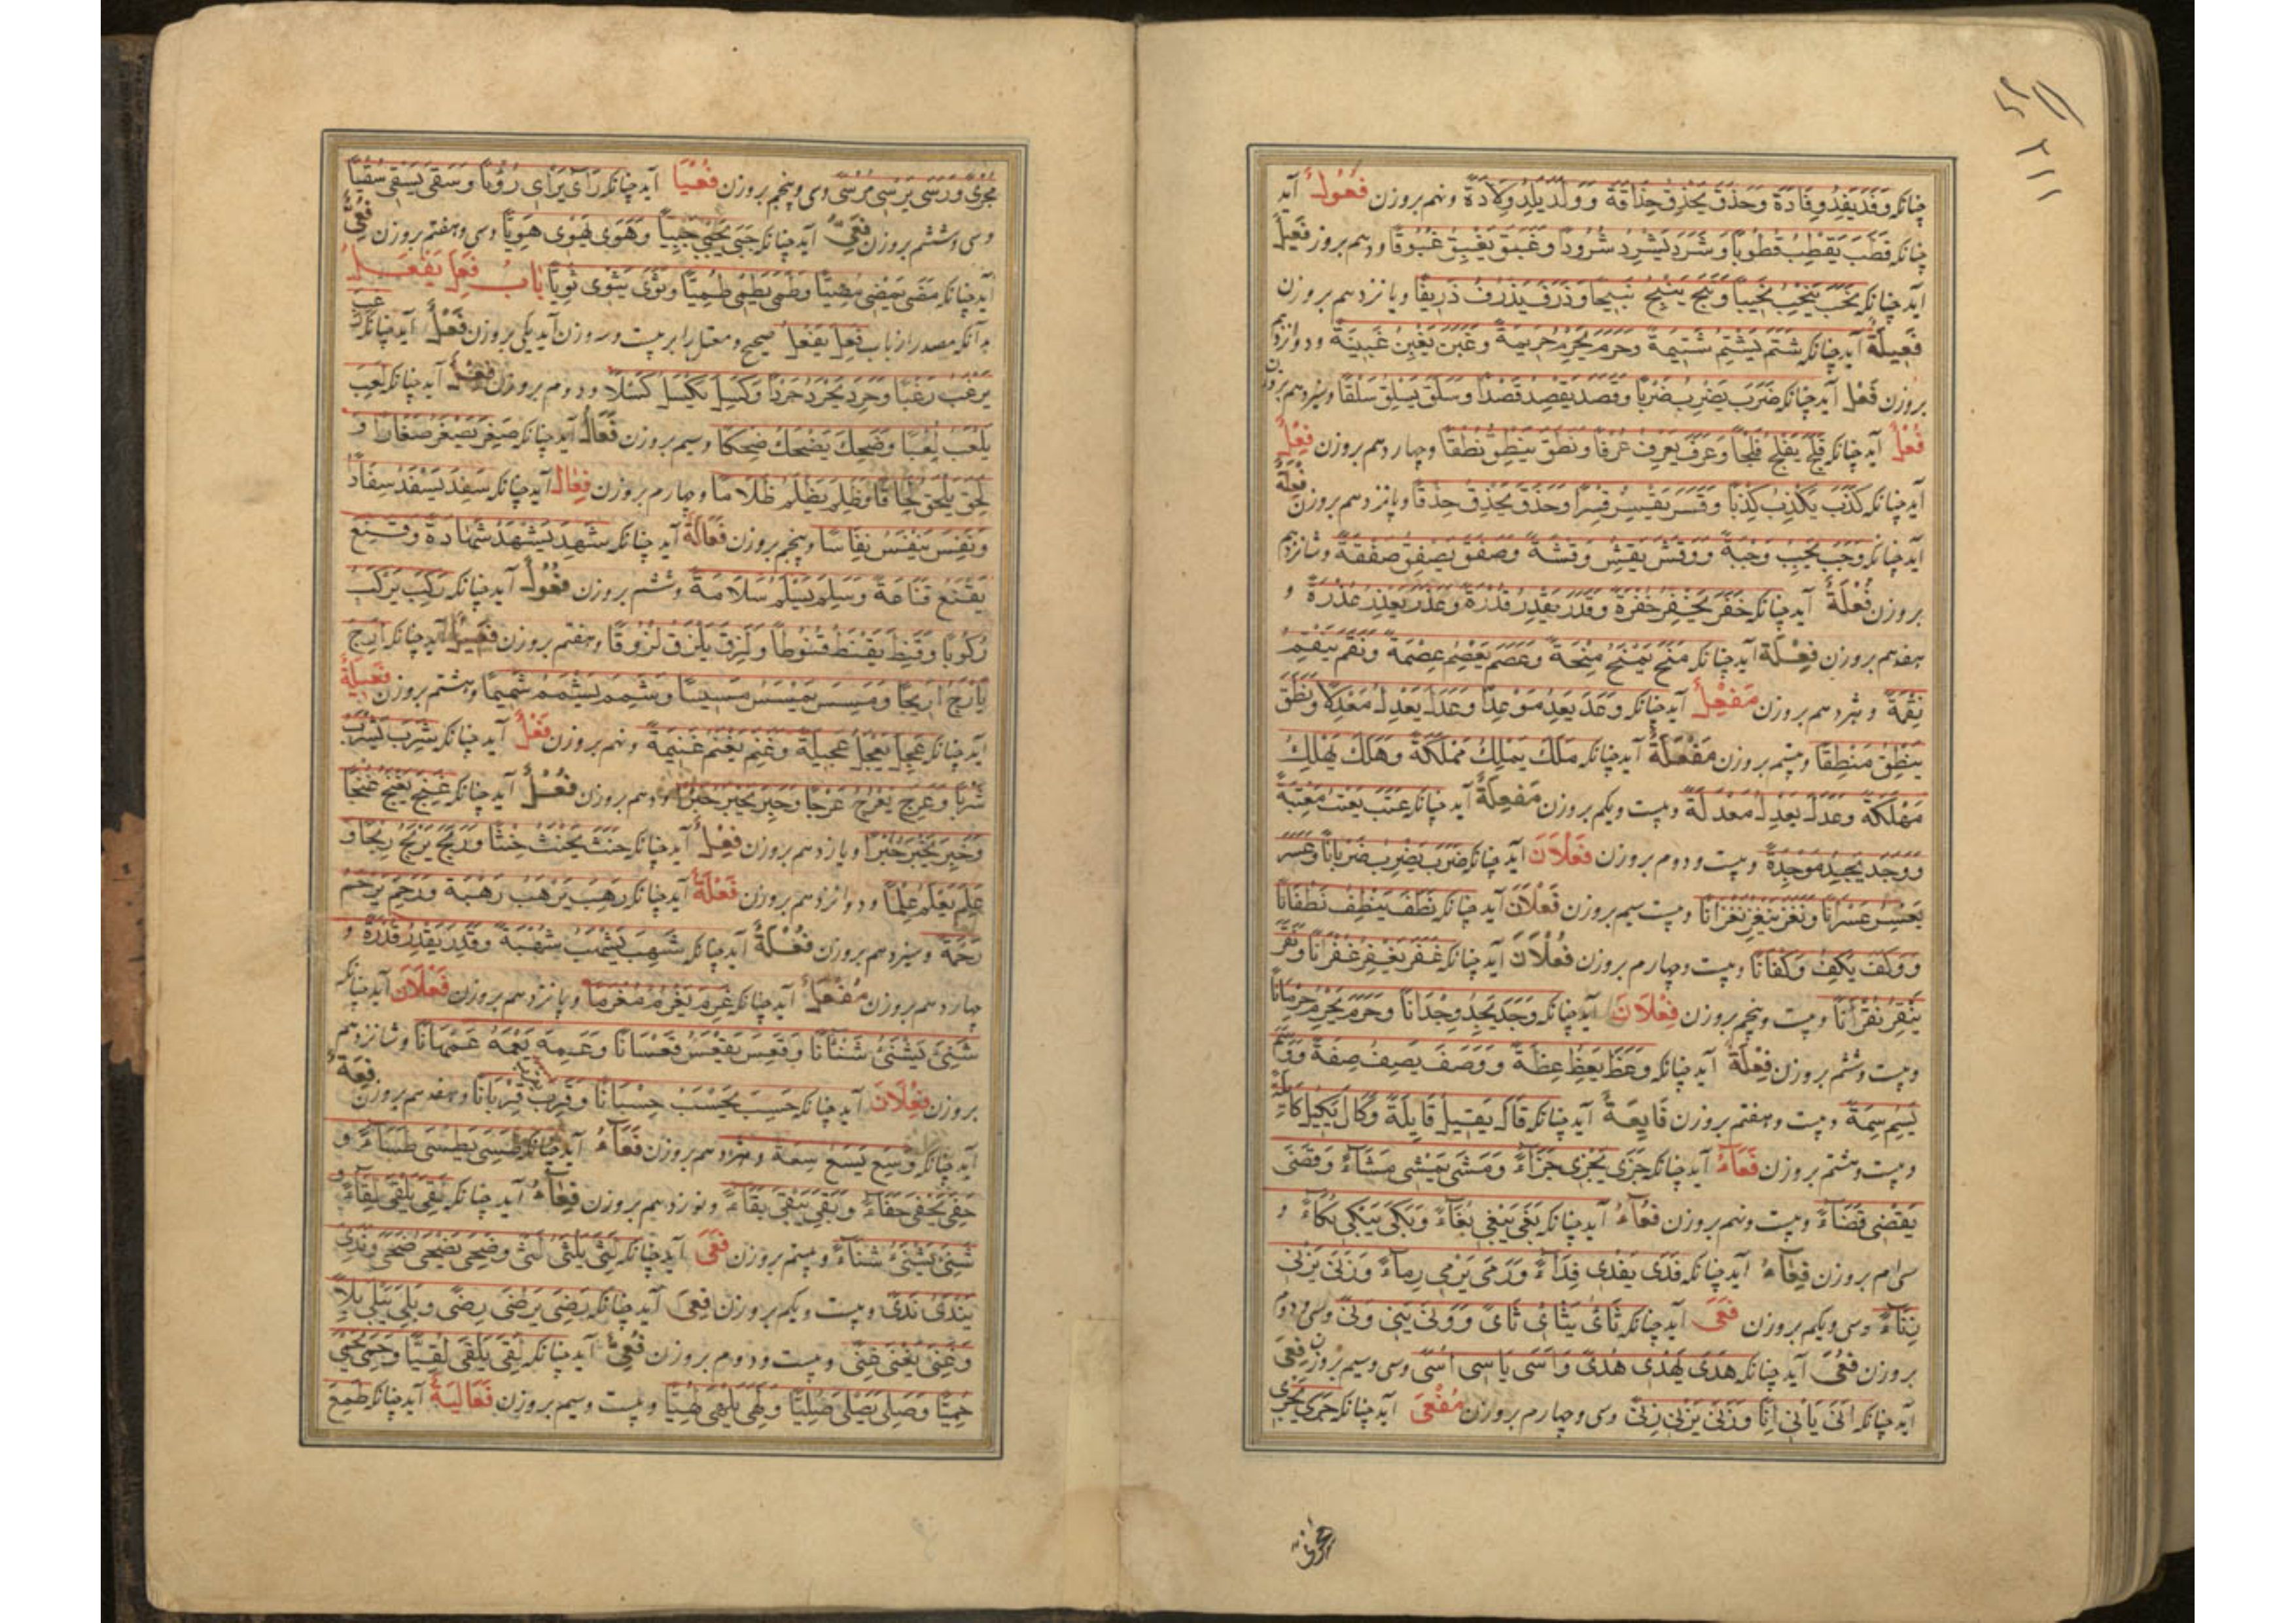 ۳۱۱
چنانکه وَفَدَ یَفِدُ وِفَادَةً وَحَذَقَ یَحْذِقُ حِذَاقَةً وَوَلَدَ یَلِدُ وِلَادَةً ونهم بروزن فُعُولٌ آید
چنانکه قَطَبَ یَقْطِبُ قُطُوبًا وَشَرَدَ یَشْرِدُ شُرُودًا وَغَبَقَ یَغْبِقُ غُبُوقًا ودهم بروزن فَعِیلٌ
آید چنانکه نَحَبَ یَنْحِبُ نَحِیبًا وَنَبَجَ یَنْبِجُ نَبِیجًا وَذَرَفَ یَذْرِفُ ذَرِیفًا ویازدهم بروزن
فَعِیلَةٌ آید چنانکه شَتَمَ یَشْتِمُ شَتِیمَةً وَحَرَمَ یَحْرِمُ حَرِیمَةً وَغَبَنَ یَغْبِنُ غَبِینَةً ودوازدهم
بروزن فَعْلٌ آید چنانکه ضَرَبَ یَضْرِبُ ضَرْبًا وَقَصَدَ یَقْصِدُ قَصْدًا وَسَلَقَ یَسْلِقُ سَلْقًا وسیزدهم بروزن
فُعْلٌ آید چنانکه فَلَجَ یَفْلِجُ فُلْجًا وَعَرَفَ یَعْرِفُ عُرْفًا وَنَطَقَ یَنْطِقُ نُطْقًا وچهاردهم بروزن فِعْلٌ
آید چنانکه کَذَبَ یَکْذِبُ کِذْبًا وَقَسَرَ یَقْسِرُ قِسْرًا وَحَذَقَ یَحْذِقُ حِذْقًا وپانزدهم بروزن فَعْلَةٌ
آید چنانکه وَجَبَ یَجِبُ وَجْبَةً وَوَقَشَ یَقِشُ وَقْشَةً وَصَفَقَ یَصْفِقُ صَفْقَةً وشانزدهم
بروزن فُعْلَةٌ آید چنانکه خَفَرَ یَخْفِرُ خُفْرَةً وَقَدَرَ یَقْدِرُ قُدْرَةً وَعَذَرَ یَعْذِرُ عُذْرَةً و
هفدهم بروزن فِعْلَةٌ آید چنانکه مَنَحَ یَمْنَحُ مِنْحَةً وَعَصَمَ یَعْصِمُ عِصْمَةً وَنَقَمَ یَنْقِمُ
نِقْمَةً وهژدهم بروزن مَفْعِلٌ آید چنانکه وَعَدَ یَعِدُ مَوْعِدًا وَعَدَلَ یَعْدِلُ مَعْدِلًا وَنَطَقَ
یَنْطِقُ مَنْطِقًا وبیستم بروزن مَفْعَلَةٌ آید چنانکه مَلَكَ یَمْلِكُ مَمْلَکَةً وَهَلَكَ یَهْلِكُ
مَهْلَکَةً وَعَدَلَ یَعْدِلُ مَعْدَلَةً وبیست ویکم بروزن مَفْعِلَةٌ آید چنانکه عَتَبَ یَعْتِبُ مَعْتِبَةً
وَوَجَدَ یَجِدُ مَوْجِدَةً وبیست ودوم بروزن فَعَلَانَ آید چنانکه ضَرَبَ یَضْرِبُ ضَرَبَانًا وَعَسَرَ
یَعْسِرُ عَسَرَانًا وَنَغَزَ یَنْغِزُ نَغَزَانًا وبیست سیم بروزن فَعْلَانَ آید چنانکه نَطَفَ یَنْطِفُ نَطْفَانًا
وَوَکَفَ یَکِفُ وَکْفَانًا وبیست وچهارم بروزن فُعْلَانَ آید چنانکه غَفَرَ یَغْفِرُ غُفْرَانًا وَنَقَرَ
یَنْقِرُ نُقْرَانًا وبیست وپنجم بروزن فِعْلَانَ آید چنانکه وَجَدَ یَجِدُ وِجْدَانًا وَحَرَمَ یَحْرِمُ حِرْمَانًا
وبیست وششم بروزن فِعْلَةٌ آید چنانکه وَعَظَ یَعِظُ عِظَةً وَوَصَفَ یَصِفُ صِفَةً وَوَسَمَ
یَسِمُ سِمَةً وبیست وهفتم بروزن فَایِعَةٌ آید چنانکه قَالَ یَقِیلُ قَایِلَةً وَکَالَ یَکِیلُ کَایِلَةً
وبیست وهشتم بروزن فَعَاءٌ آید چنانکه جَزَی یَجْزِی جَزَاءً وَمَشَی یَمْشِی مَشَاءً وَقَضَی
یَقْضِی قَضَاءً وبیست ونهم بروزن فُعَاءٌ آید چنانکه بَغَی یَبْغِی بُغَاءً وَبَکَی یَبْکِی بُکَاءً و
سی ام بروزن فِعَاءٌ آید چنانکه فَدَی یَفْدِی فِدَاءً وَرَمَی یَرْمِی رِمَاءً وَزَنَی یَزْنِی
زِنَاءً وسی ویکم بروزن فَعَی آید چنانکه ثَائَ یَثْائِ ثَائً وَوَنَی یَنِی وَنًی وسی ودوم
بروزن فُعَی آید چنانکه هَدَی یَهْدِی هُدًی وَاَسَی یَاْسِی اُسًی وسی وسیم بروزن فِعَی
آید چنانکه اَنَی یَاْنِی اِنًا وَزَنَی یَزْنِی زِنًی وسی وچهارم بروزن مَفْعَی آید چنانکه جَرَی یَجْرِی
مَجْرًی وَرَسَی یَرْسِی مَرْسًی وسی وپنجم بروزن فُعْیًا آید چنانکه رَاَی یَرْاَی رُؤْیًا وَسَقَی یَسْقِی سُقْیًا
وسی وششم بروزن فَعِیٌّ آید چنانکه جَبَی یَجْبِی جَبِیًّا وَهَوَی یَهْوِی هَوِیًّا وسی وهفتم بروزن فُعِیٌّ
آید چنانکه مَضَی یَمْضِی مُضِیًّا وَطَمَی یَطْمِی طُمِیًّا وَثَوَی یَثْوِی ثُوِیًّا بابُ فَعِلَ یَفْعَلُ
بدآنکه مصدر از باب فَعِلَ یَفْعَلُ صحیح ومعتل را بر بیست وسه وزن آید یکی بروزن فَعَلٌ آید چنانکه رَغِبَ
یَرْغَبُ رَغَبًا وَحَرِدَ یَحْرَدُ حَرَدًا وَکَسِلَ یَکْسَلُ کَسَلًا ودوم بروزن فَعِلٌ آید چنانکه لَعِبَ
یَلْعَبُ لَعِبًا وَضَحِكَ یَضْحَكُ ضَحِکًا وسیم بروزن فَعَالٌ آید چنانکه صَغِرَ یَصْغَرُ صَغَارًا و
لَحِقَ یَلْحَقُ لَحَاقًا وَظَلِمَ یَظْلَمُ ظَلَامًا وچهارم بروزن فِعَالٌ آید چنانکه سَفِدَ یَسْفَدُ سِفَادًا
وَنَفِسَ یَنْفَسُ نِفَاسًا وپنجم بروزن فَعَالَةٌ آید چنانکه شَهِدَ یَشْهَدُ شَهَادَةً وَقَنِعَ
یَقْنَعُ قَنَاعَةً وَسَلِمَ یَسْلَمُ سَلَامَةً وششم بروزن فُعُولٌ آید چنانکه رَکِبَ یَرْکَبُ
رُکُوبًا وَقَنِطَ یَقْنَطُ قُنُوطًا وَلَزِقَ یَلْزَقُ لُزُوقًا وهفتم بروزن فَعِیلٌ آید چنانکه اَرِجَ
یَاْرَجُ اَرِیجًا وَمَسِسَ یَمْسَسُ مَسِیسًا وَشَمِمَ یَشْمَمُ شَمِیمًا وهشتم بروزن فَعِیلَةٌ
آید چنانکه عَجِلَ یَعْجَلُ عَجِیلَةً وَغَنِمَ یَغْنَمُ غَنِیمَةً ونهم بروزن فَعْلٌ آید چنانکه شَرِبَ یَشْرَبُ
شَرْبًا وَعَرِجَ یَعْرَجُ عَرْجًا وَحَبِرَ یَحْبَرُ حَبْرًا ودهم بروزن فُعْلٌ آید چنانکه غَنِجَ یَغْنَجُ غُنْجًا
وَخَبِرَ یَخْبَرُ خُبْرًا ویازدهم بروزن فِعْلٌ آید چنانکه حَنِثَ یَحْنَثُ حِنْثًا وَرَبِحَ یَرْبَحُ رِبْحًا و
عَلِمَ یَعْلَمُ عِلْمًا ودوازدهم بروزن فَعْلَةٌ آید چنانکه رَهِبَ یَرْهَبُ رَهْبَةً وَرَحِمَ یَرْحَمُ
رَحْمَةً وسیزدهم بروزن فُعْلَةٌ آید چنانکه شَهِبَ یَشْهَبُ شُهْبَةً وَقَدِرَ یَقْدَرُ قُدْرَةً و
چهاردهم بروزن مَفْعَلٌ آید چنانکه غَرِمَ یَغْرَمُ مَغْرَمًا وپانزدهم بروزن فَعَلَانَ آید چنانکه
شَنِیَٔ یَشْنَیُٔ شَنَئَانًا وَقَعِسَ یَقْعَسُ قَعَسَانًا وَعَمِهَ یَعْمَهُ عَمَهَانًا وشانزدهم
بروزن فِعْلَانَ آید چنانکه حَسِبَ یَحْسَبُ حِسْبَانًا وَقَرِبَ یَقْرَبُ قِرْبَانًا وهفدهم بروزن فِعَةٌ
آید چنانکه وَسِعَ یَسَعُ سِعَةً وهژدهم بروزن فَعَاءٌ آید چنانکه طَسِیَ یَطْسَی طَسَاءً و
حَفِیَ یَحْفَی حَفَاءً وَبَقِیَ یَبْقَی بَقَاءً ونوزدهم بروزن فِعَاءٌ آید چنانکه لَقِیَ یَلْقَی لِقَاءً و
شَنِیَٔ یَشْنَیُٔ شِنَاءً وبیستم بروزن فَعَی آید چنانکه لَثِیَ یَلْثَی لَثًی وَضَحِیَ یَضْحَی ضَحًی وَنَدِیَ
یَنْدَی نَدًی وبیست ویکم بروزن فِعَی آید چنانکه رَضِیَ یَرْضَی رِضًی وَبَلِیَ یَبْلَی بِلًا
وَغَنِیَ یَغْنَی غِنًی وبیست ودوم بروزن فُعِیٌّ آید چنانکه لَقِیَ یَلْقَی لُقِیًّا وَحَمِیَ یَحْمَی
حُمِیًّا وَصَلِیَ یَصْلَی صُلِیًّا وَلَهِیَ یَلْهَی لُهِیًّا وبیست وسیم بروزن فَعَالِیَةٌ آید چنانکه طَمِعَ
مجری